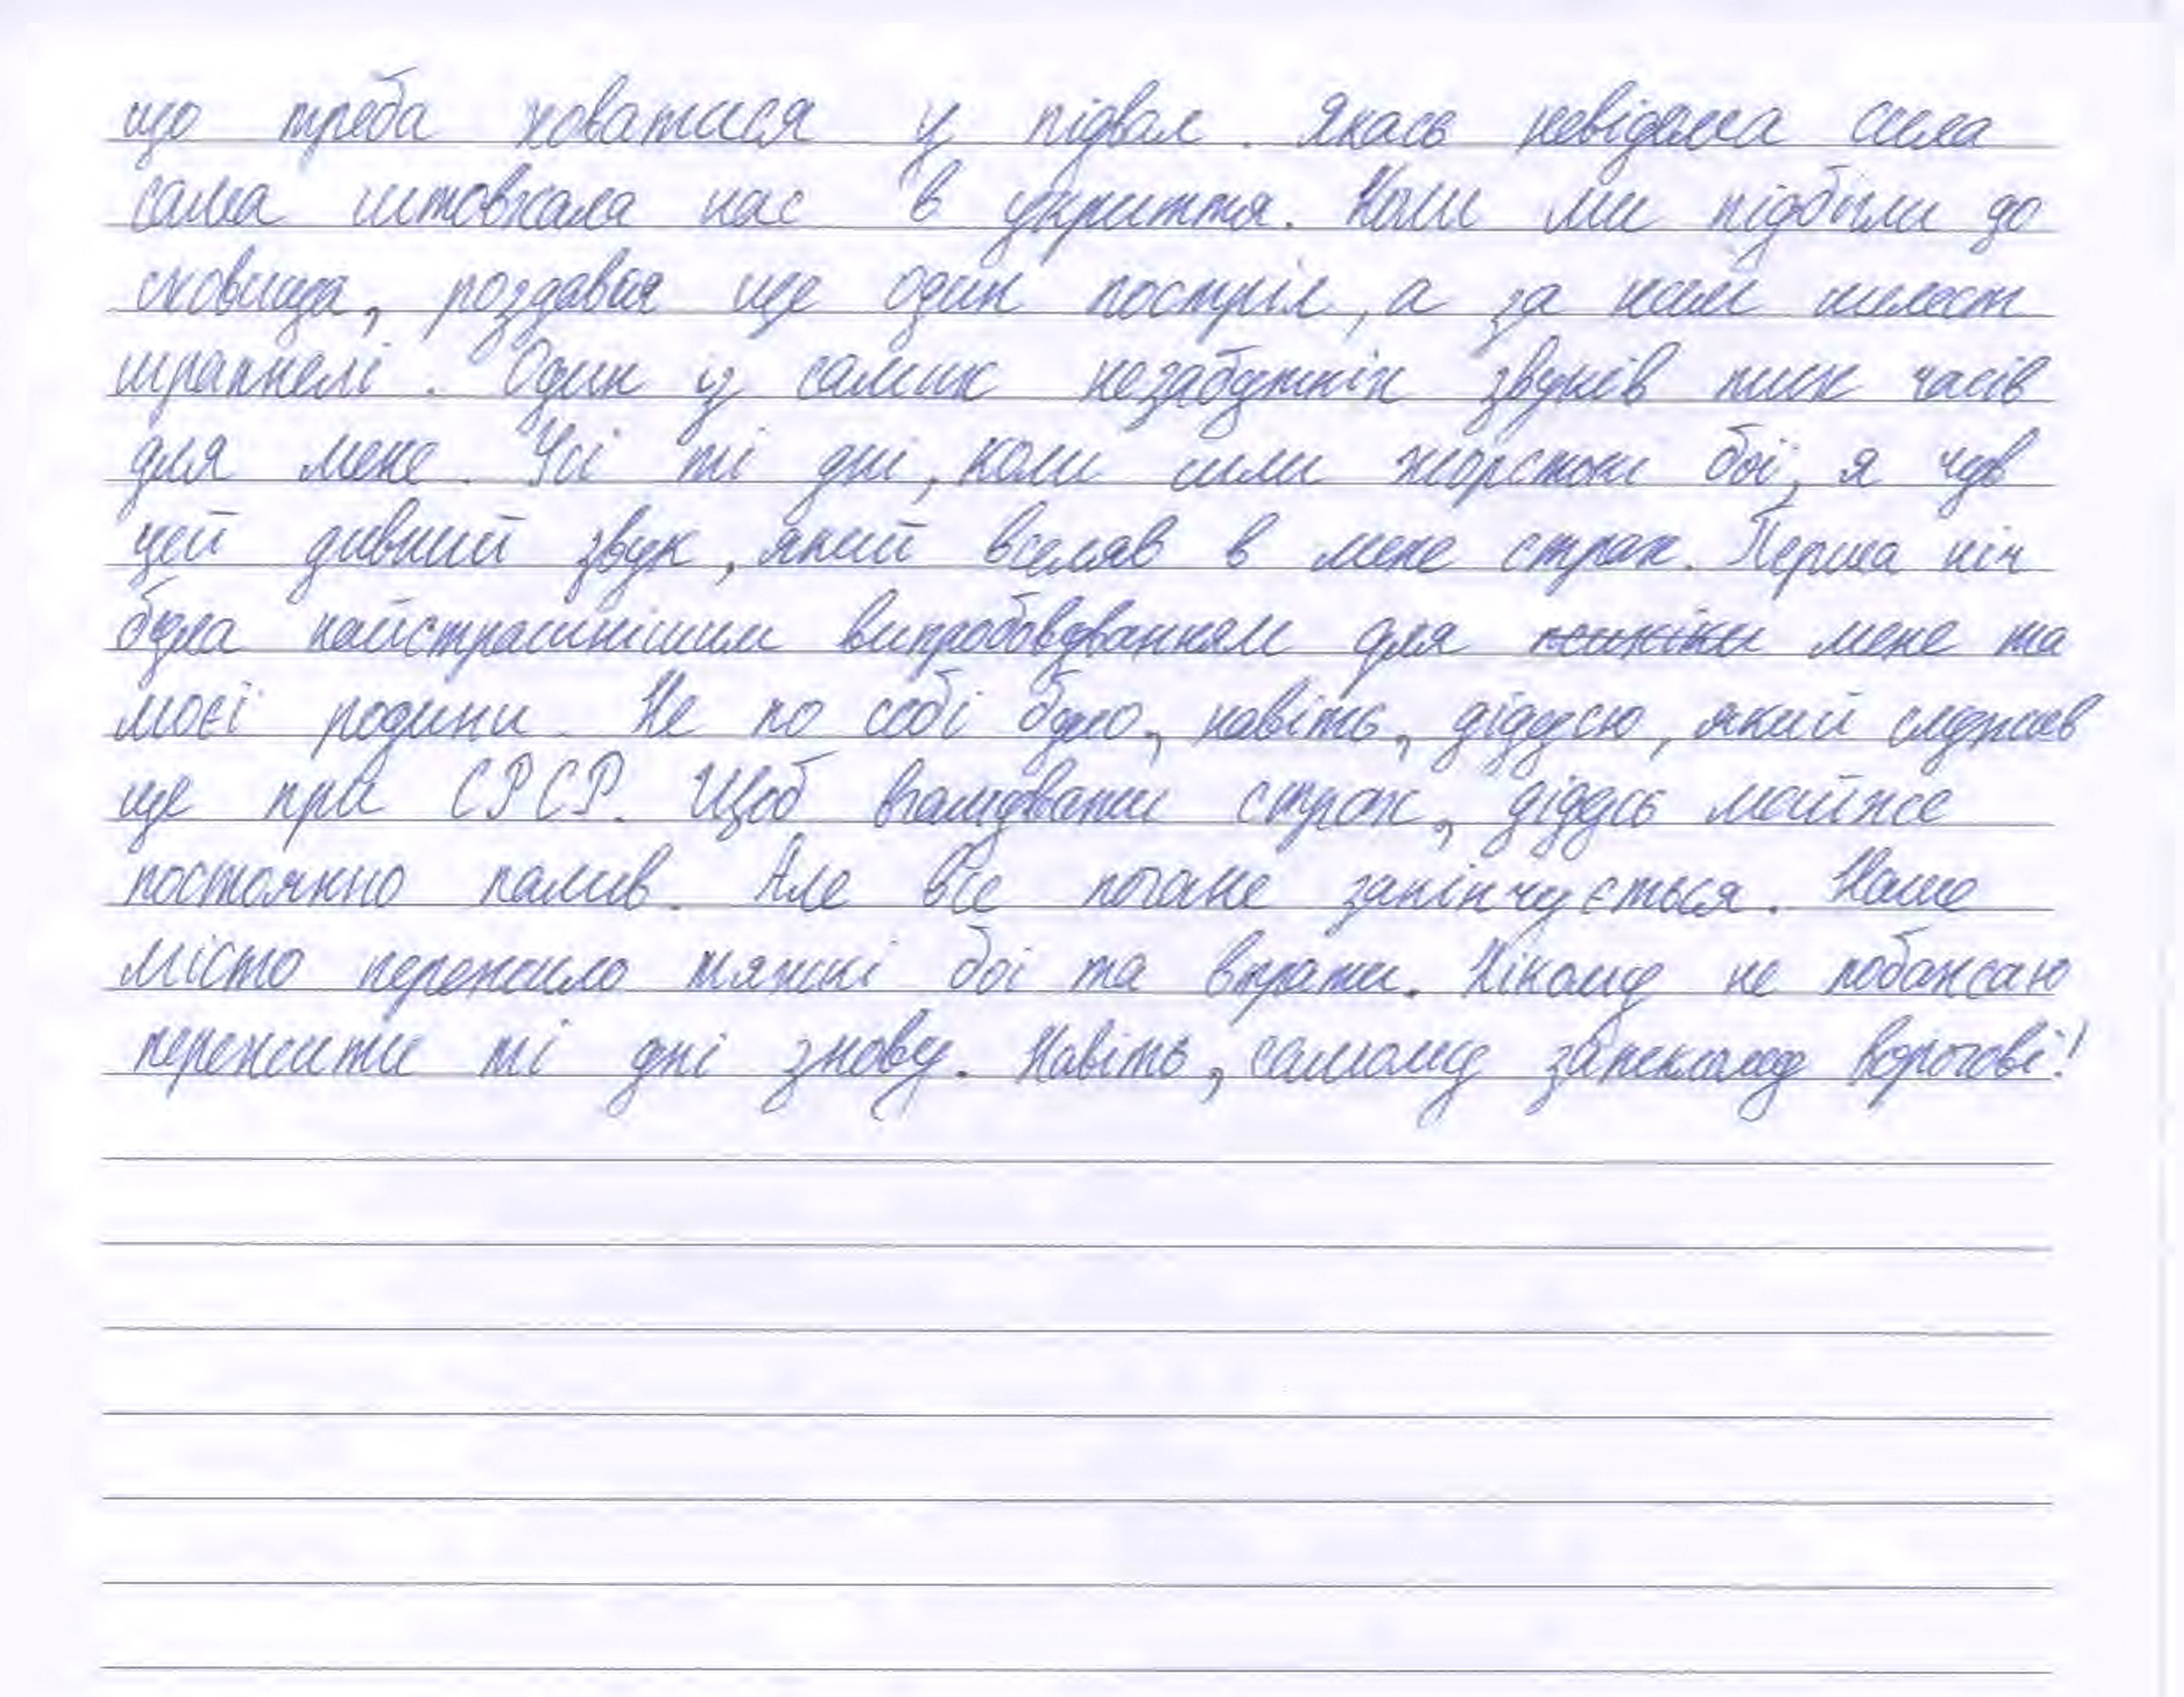 що треба ховатися у підвал. Якась невідома сила
сама штовхала нас в укриття. Коли ми підбігли до
сховища, роздався ще один постріл, а за ним шелест
шрапнелі. Один із самих незабутніх звуків тих часів
для мене. Усі ті дні, коли йшли жорстокі бої, я чув
цей дивний звук, який вселяв в мене страх. Перша ніч
була найстрашнішим випробовуванням для мене та
моєї родини. Не по собі було, навіть, дідусю, який служив
ще при СРСР. Щоб вгамувати страх, дідусь майже
постоянно палив. Але все погане закінчується. Наше
місто пережило тяжкі бої та втрати. Нікому не побажаю
пережити ті дні знову. Навіть, самому запеклому ворогові!